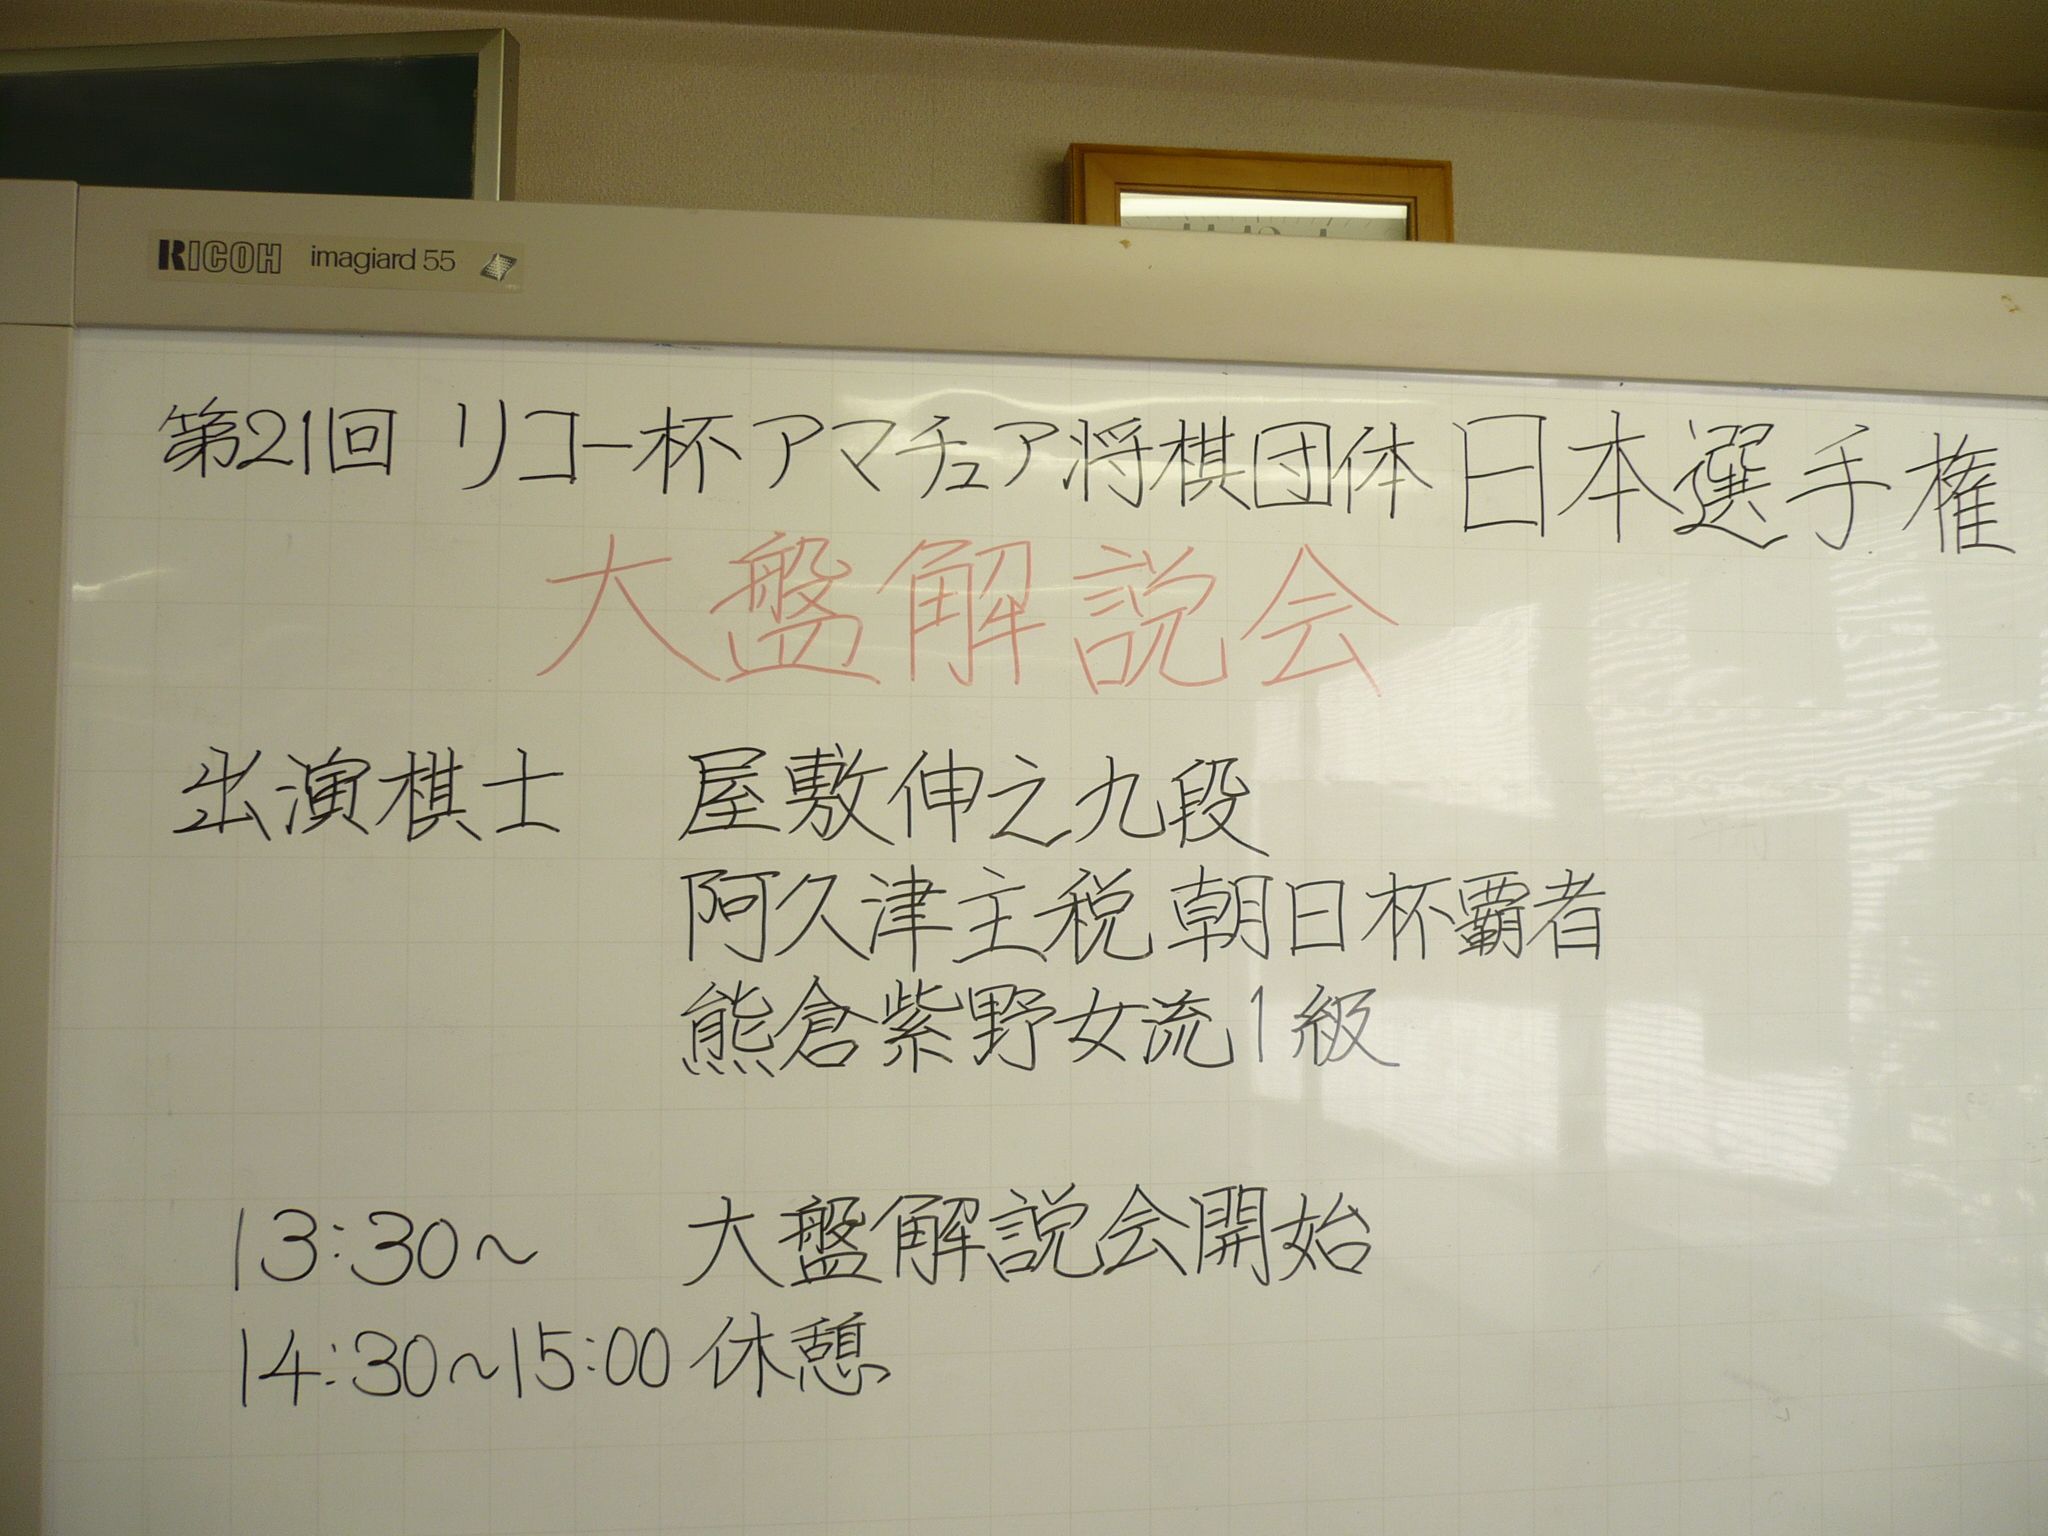 RICOH imagiard 55
第21回 リコー杯アマチュア将棋団体日本選手権
大盤解説会
出演棋士 屋敷伸之九段
阿久津主税 朝日杯覇者
熊倉紫野女流1級
13:30～ 大盤解説会開始
14:30～15:00 休憩